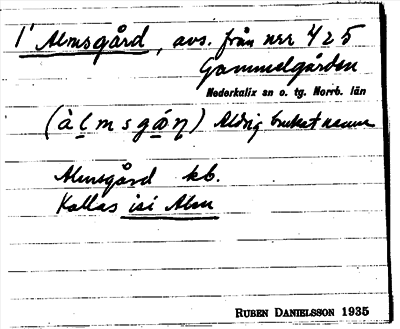 1' Almsgård, avs. från nrr 425
Gammelgården
Nederkalix sn o. tg. Norrb. län
(à l m s g å n) Aldrig brukat namn
Almsgård kb.
Kallas isi Alm
RUBEN DANIELSSON 1935